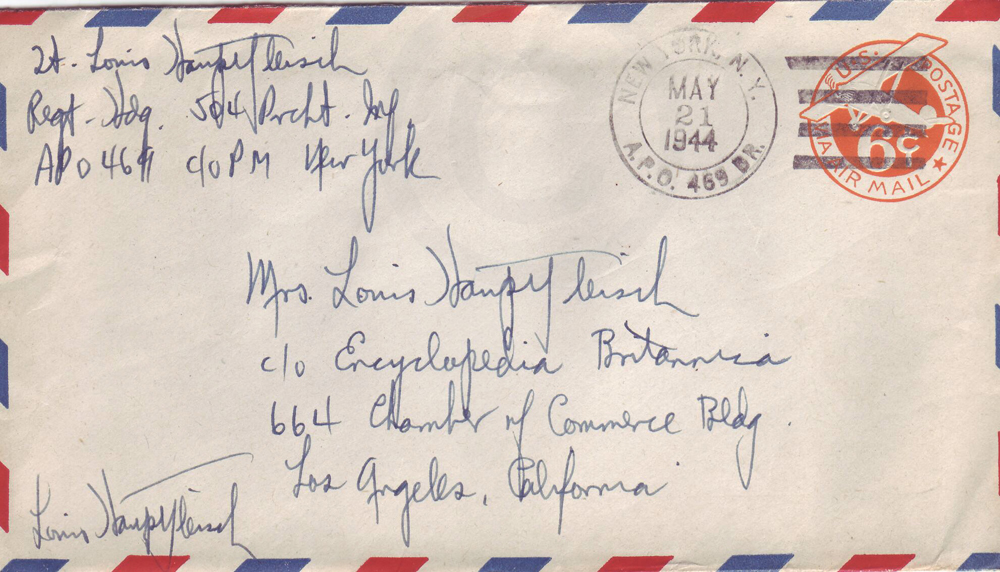 Lt. Louis Hauptfleisch
Regt. Hdq. 504 Prcht. Inf.
APO 469 c/o PM New York
NEW YORK, N.Y.
MAY
21
1944
A.P.O. 469 BR.
U.S. POSTAGE
6c
VIA AIR MAIL
Mrs. Louis Hauptfleisch
c/o Encyclopedia Britannica
664 Chamber of Commerce Bldg.
Los Angeles, California
Louis Hauptfleisch